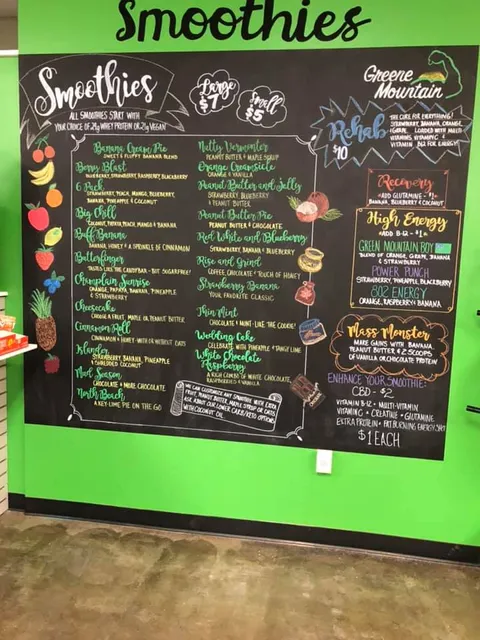 Smoothies
Smoothies
ALL SMOOTHIES START WITH
YOUR CHOICE OF 24g WHEY PROTEIN OR 21g VEGAN
Large
$7
Small
$5
Banana Cream Pie
SWEET & FLUFFY BANANA BLEND
Berry Blast
BLUEBERRY, STRAWBERRY, RASPBERRY, BLACKBERRY
6 Pack
STRAWBERRY, PEACH, MANGO, BLUEBERRY,
BANANA, PINEAPPLE & COCONUT
Big Chill
COCONUT, PAPAYA, PEACH, MANGO & BANANA
Buff Banana
BANANA, HONEY & A SPRINKLE OF CINNAMON
Butterfinger
TASTES LIKE THE CANDYBAR - BUT SUGARFREE!
Champlain Sunrise
ORANGE, PAPAYA, BANANA, PINEAPPLE
& STRAWBERRY
Cheesecake
CHOOSE A FRUIT, MAPLE OR PEANUT BUTTER
Cinnamon Roll
CINNAMON & HONEY - WITH OR WITHOUT OATS
Islander
STRAWBERRY, BANANA, PINEAPPLE
& SHREDDED COCONUT
Mud Season
CHOCOLATE + MORE CHOCOLATE
North Beach
A KEY-LIME PIE ON THE GO
Nutty Vermonter
PEANUT BUTTER & MAPLE SYRUP
Orange Creamsicle
ORANGE & VANILLA
Peanut Butter and Jelly
STRAWBERRY, BLUEBERRY
& PEANUT BUTTER
Peanut Butter Pie
PEANUT BUTTER & CHOCOLATE
Red White and Blueberry
STRAWBERRY, BANANA & BLUEBERRY
Rise and Grind
COFFEE, CHOCOLATE & TOUCH OF HONEY
Strawberry Banana
YOUR FAVORITE CLASSIC
Thin Mint
CHOCOLATE & MINT-LIKE THE COOKIE!
Wedding Cake
CELEBRATE WITH PINEAPPLE & TANGY LIME
White Chocolate
Raspberry
A RICH COMBO OF WHITE CHOCOLATE,
RASPBERRIES & VANILLA
WE CAN CUSTOMIZE ANY SMOOTHIE WITH EXTRA
FRUIT, PEANUT BUTTER, MAPLE SYRUP OR OATS
ASK ABOUT OUR LOWER CARB/KETO OPTIONS
WITH COCONUT OIL
Greene
Mountain
Rehab
$10
THE CURE FOR EVERYTHING!
STRAWBERRY, BANANA, ORANGE,
LOADED WITH MULTI
VITAMINS, VITAMIN C &
VITAMIN B12 FOR ENERGY!
Recovery
ADD GLUTAMINE - $1
BANANA, BLUEBERRY & COCONUT
High Energy
ADD B-12 - $1
GREEN MOUNTAIN BOY
BLEND OF ORANGE, GRAPE, BANANA
& STRAWBERRY
POWER PUNCH
STRAWBERRY, PINEAPPLE, BLACKBERRY
802 ENERGY
ORANGE, RASPBERRY & BANANA
Mass Monster
MAKE GAINS WITH BANANA
PEANUT BUTTER & 2 SCOOPS
OF VANILLA OR CHOCOLATE PROTEIN
ENHANCE YOUR SMOOTHIE:
CBD - $2
VITAMIN B-12 • MULTI-VITAMIN
VITAMIN C • CREATINE • GLUTAMINE
EXTRA PROTEIN • FAT BURNING ENERGY SHOT
$1 EACH